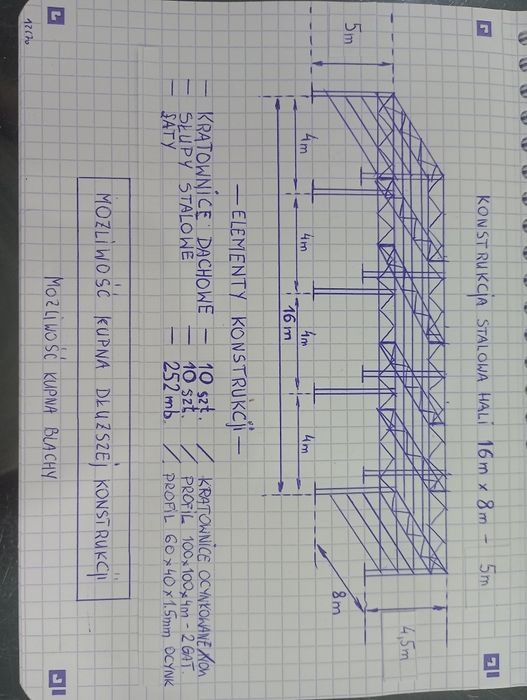 KONSTRUKCJA STALOWA HALI 16m x 8m - 5m
5m
4,5m
4m
4m
4m
4m
16m
8m
— ELEMENTY KONSTRUKCJI —
— KRATOWNICE DACHOWE — 10 szt. / KRATOWNICE OCYNKOWANE
— SŁUPY STALOWE — 10 szt. / PROFIL 100x100x4m - 2 GAT.
— ŁATY — 252 mb. / PROFIL 60x40x1.5mm OCYNK
MOŻLIWOŚĆ KUPNA DŁUŻSZEJ KONSTRUKCJI
MOŻLIWOŚĆ KUPNA BLACHY